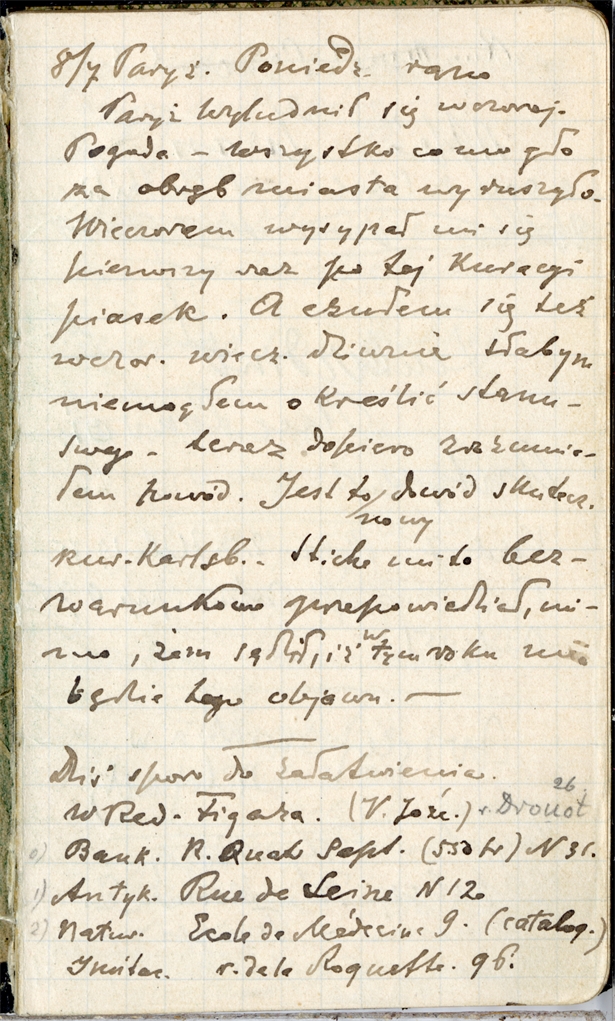 8/7 Paryż. Poniedz. rano
Paryż wyludnił się wczoraj.
Pogoda – wszystko co mogło
za obręb miasta wyruszyło.
Wieczorem wysypał mi się
pierwszy raz po tej kuracyi
piasek. A czułem się też
wczor. wiecz. dziwnie słabym
niemogłem określić stanu
swego – teraz dopiero zrozumia-
łem powód. Jest to dowód skutecz.
nowy
kur. Karlsb. – mi to bez-
warunkowo przepowiedział, mi-
mo, żem sądził, iż w tym roku nie
będzie tego objawu. —
Dziś sporo do załatwienia.
W Red. Figara. (V. Józ.) r. Drouot
26
0) Bank. R. Quatr Sept. (550 fr) N 31.
1) Antyk. Rue de Seine N 12
2) Natur. Ecole de Médecine 9. (catalog.)
Imitac. r. de la Roquette. 96.